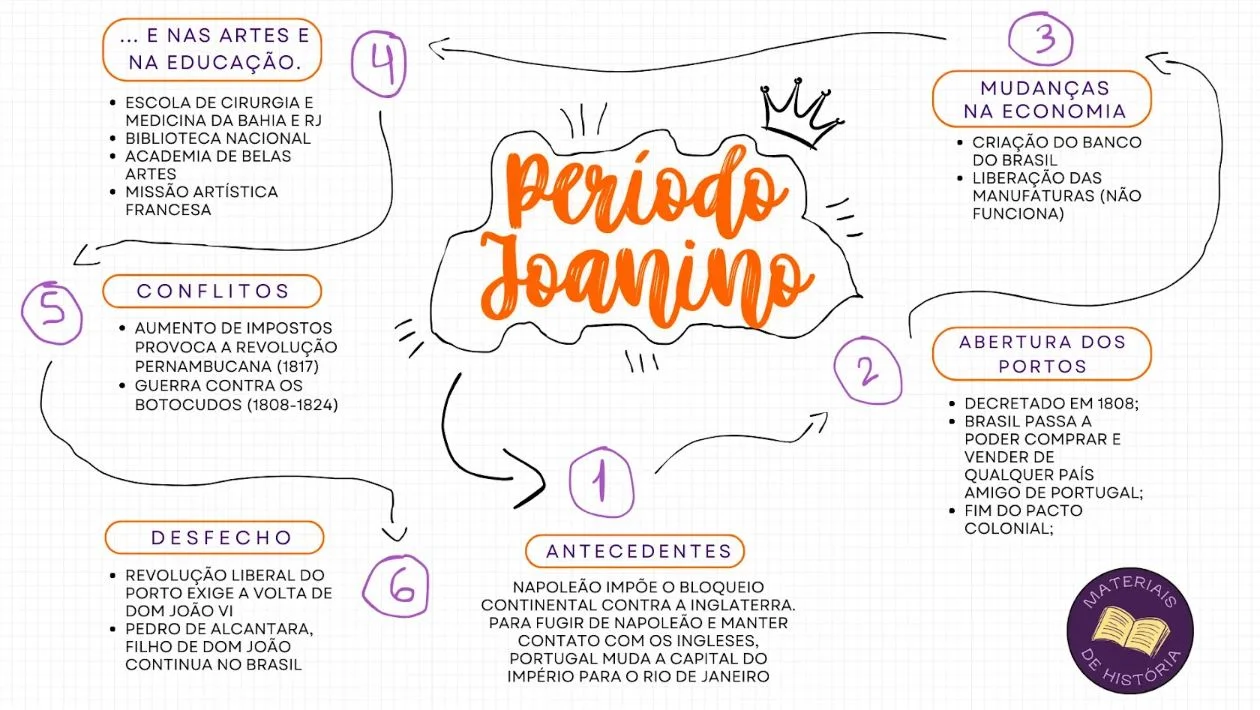 Período
Joanino
1
ANTECEDENTES
NAPOLEÃO IMPÕE O BLOQUEIO
CONTINENTAL CONTRA A INGLATERRA.
PARA FUGIR DE NAPOLEÃO E MANTER
CONTATO COM OS INGLESES,
PORTUGAL MUDA A CAPITAL DO
IMPÉRIO PARA O RIO DE JANEIRO
2
ABERTURA DOS
PORTOS
• DECRETADO EM 1808;
• BRASIL PASSA A
PODER COMPRAR E
VENDER DE
QUALQUER PAÍS
AMIGO DE PORTUGAL;
• FIM DO PACTO
COLONIAL;
3
MUDANÇAS
NA ECONOMIA
• CRIAÇÃO DO BANCO
DO BRASIL
• LIBERAÇÃO DAS
MANUFATURAS (NÃO
FUNCIONA)
4
... E NAS ARTES E
NA EDUCAÇÃO.
• ESCOLA DE CIRURGIA E
MEDICINA DA BAHIA E RJ
• BIBLIOTECA NACIONAL
• ACADEMIA DE BELAS
ARTES
• MISSÃO ARTÍSTICA
FRANCESA
5
CONFLITOS
• AUMENTO DE IMPOSTOS
PROVOCA A REVOLUÇÃO
PERNAMBUCANA (1817)
• GUERRA CONTRA OS
BOTOCUDOS (1808-1824)
6
DESFECHO
• REVOLUÇÃO LIBERAL DO
PORTO EXIGE A VOLTA DE
DOM JOÃO VI
• PEDRO DE ALCANTARA,
FILHO DE DOM JOÃO
CONTINUA NO BRASIL
MATERIAIS
DE HISTÓRIA